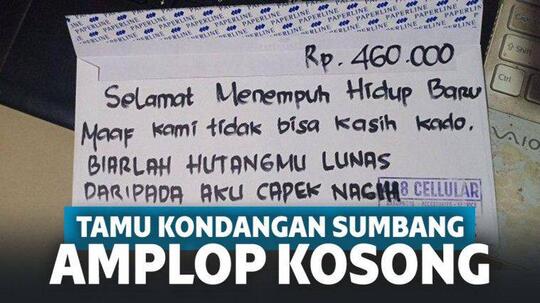 PAPERLINE PAPERLINE PAPERLINE
Rp. 460.000
Selamat Menempuh Hidup Baru
Maaf kami tidak bisa kasih kado.
BIARLAH HUTANGMU LUNAS
DARIPADA AKU CAPEK NAGIH
8 CELLULAR
Shift
Ctrl
VAIO
TAMU KONDANGAN SUMBANG
AMPLOP KOSONG